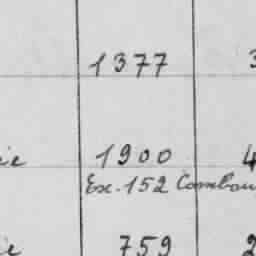 1377 3
ie 1900 4
Ex. 152 Combou
ie 759 2